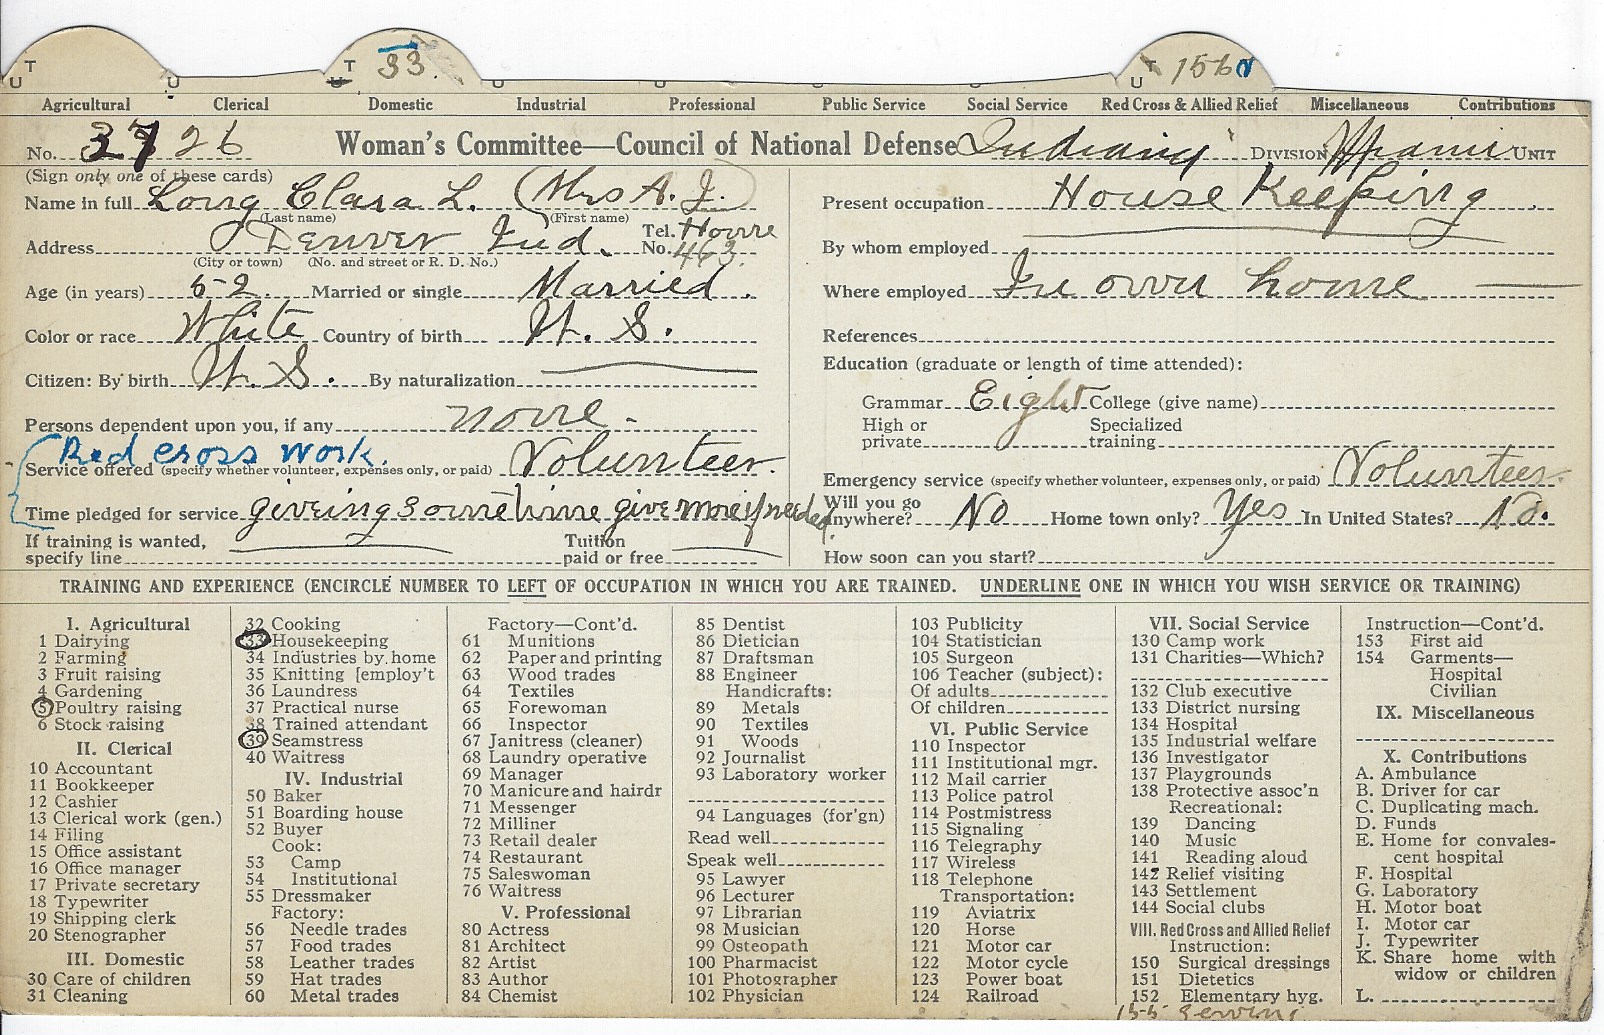 T
U
U
T 33.
U
U
U
U
U
U
U
T 156 v
Agricultural Clerical Domestic Industrial Professional Public Service Social Service Red Cross & Allied Relief Miscellaneous Contributions
No. 3726 Woman's Committee—Council of National Defense Indiana DIVISION Miami UNIT
(Sign only one of these cards)
Name in full Long Clara L. (Mrs A. J.)
(Last name) (First name)
Address Denver Ind. Tel. No. Home 463.
(City or town) (No. and street or R. D. No.)
Age (in years) 52. Married or single Married.
Color or race White Country of birth U. S.
Citizen: By birth U. S. By naturalization
Persons dependent upon you, if any none -
Red Cross Work.
Service offered (specify whether volunteer, expenses only, or paid) Volunteer.
Time pledged for service giveing some time give more if needed.
If training is wanted, specify line Tuition paid or free
Present occupation House Keeping
By whom employed
Where employed In own home
References
Education (graduate or length of time attended):
Grammar Eight College (give name)
High or private Specialized training
Emergency service (specify whether volunteer, expenses only, or paid) Volunteer.
Will you go anywhere? No Home town only? Yes In United States? No.
How soon can you start?
TRAINING AND EXPERIENCE (ENCIRCLE NUMBER TO LEFT OF OCCUPATION IN WHICH YOU ARE TRAINED. UNDERLINE ONE IN WHICH YOU WISH SERVICE OR TRAINING)
I. Agricultural
1 Dairying
2 Farming
3 Fruit raising
4 Gardening
5 Poultry raising
6 Stock raising
II. Clerical
10 Accountant
11 Bookkeeper
12 Cashier
13 Clerical work (gen.)
14 Filing
15 Office assistant
16 Office manager
17 Private secretary
18 Typewriter
19 Shipping clerk
20 Stenographer
III. Domestic
30 Care of children
31 Cleaning
32 Cooking
33 Housekeeping
34 Industries by home
35 Knitting [employ't
36 Laundress
37 Practical nurse
38 Trained attendant
39 Seamstress
40 Waitress
IV. Industrial
50 Baker
51 Boarding house
52 Buyer
Cook:
53 Camp
54 Institutional
55 Dressmaker
Factory:
56 Needle trades
57 Food trades
58 Leather trades
59 Hat trades
60 Metal trades
Factory—Cont'd.
61 Munitions
62 Paper and printing
63 Wood trades
64 Textiles
65 Forewoman
66 Inspector
67 Janitress (cleaner)
68 Laundry operative
69 Manager
70 Manicure and hairdr
71 Messenger
72 Milliner
73 Retail dealer
74 Restaurant
75 Saleswoman
76 Waitress
V. Professional
80 Actress
81 Architect
82 Artist
83 Author
84 Chemist
85 Dentist
86 Dietician
87 Draftsman
88 Engineer
Handicrafts:
89 Metals
90 Textiles
91 Woods
92 Journalist
93 Laboratory worker
94 Languages (for'gn)
Read well
Speak well
95 Lawyer
96 Lecturer
97 Librarian
98 Musician
99 Osteopath
100 Pharmacist
101 Photographer
102 Physician
103 Publicity
104 Statistician
105 Surgeon
106 Teacher (subject):
Of adults
Of children
VI. Public Service
110 Inspector
111 Institutional mgr.
112 Mail carrier
113 Police patrol
114 Postmistress
115 Signaling
116 Telegraphy
117 Wireless
118 Telephone
Transportation:
119 Aviatrix
120 Horse
121 Motor car
122 Motor cycle
123 Power boat
124 Railroad
VII. Social Service
130 Camp work
131 Charities—Which?
132 Club executive
133 District nursing
134 Hospital
135 Industrial welfare
136 Investigator
137 Playgrounds
138 Protective assoc'n
Recreational:
139 Dancing
140 Music
141 Reading aloud
142 Relief visiting
143 Settlement
144 Social clubs
VIII. Red Cross and Allied Relief
Instruction:
150 Surgical dressings
151 Dietetics
152 Elementary hyg.
155 Sewing
Instruction—Cont'd.
153 First aid
154 Garments—
Hospital
Civilian
IX. Miscellaneous
X. Contributions
A. Ambulance
B. Driver for car
C. Duplicating mach.
D. Funds
E. Home for convales-
cent hospital
F. Hospital
G. Laboratory
H. Motor boat
I. Motor car
J. Typewriter
K. Share home with
widow or children
L.